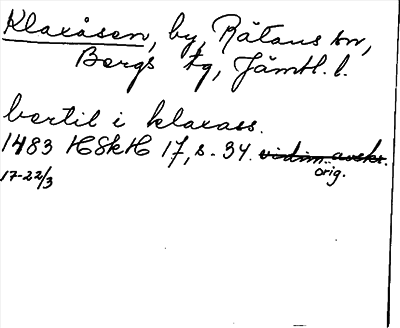 Klaxåsen, by, Rätans sn,
Bergs tg, Jämtl. l.
bertil i klaxass.
1483 HSkH 17, s. 34. vidim. avskr.
orig.
17-22/3